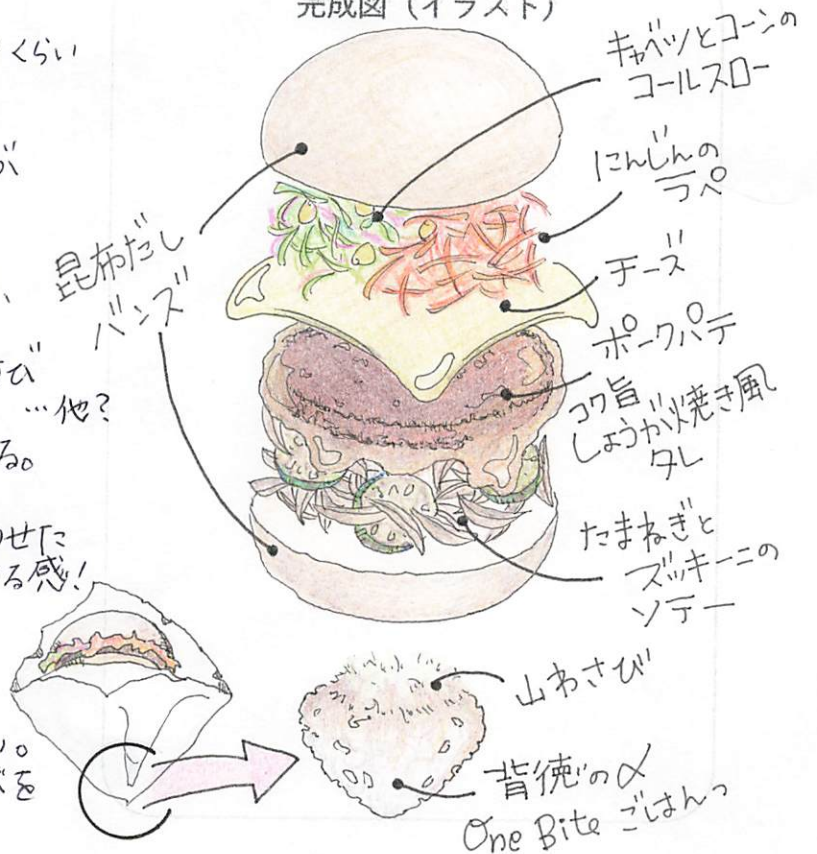 完成図（イラスト）
くらい
が
昆布だし
バンズ
…他?
る。
のせた
る感!
キャベツとコーンの
コールスロー
にんじんの
ラペ
チーズ
ポークパテ
コク旨
しょうが焼き風
タレ
たまねぎと
ズッキーニの
ソテー
山わさび
背徳の〆
One Bite ごはんっ
。
を